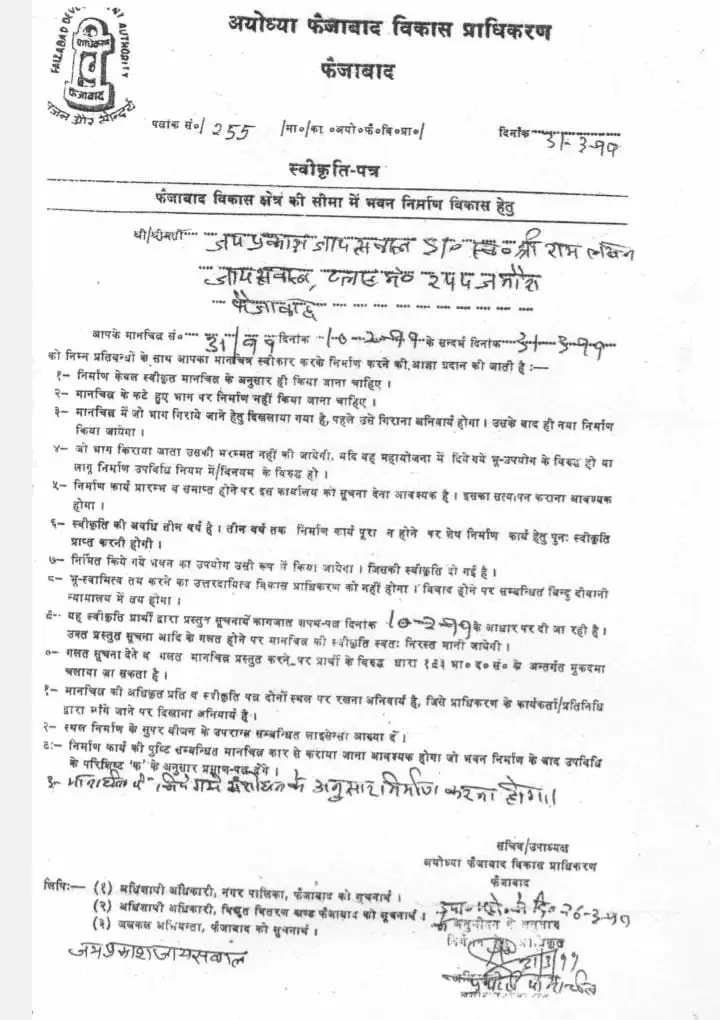 FAIZABAD DEVELOPMENT AUTHORITY
प्राधिकरण
फैजाबाद
अयोध्या फैजाबाद विकास प्राधिकरण
फैजाबाद
पत्रांक सं०/ 255 /मा०/का०अयो०फै०वि०प्रा०/ दिनांक 31-3-99
स्वीकृति-पत्र
फैजाबाद विकास क्षेत्र की सीमा में भवन निर्माण विकास हेतु
श्री/श्रीमती जयप्रकाश जायसवाल S/० स्व० श्री राम लखन
जायसवाल,
फैजाबाद
आपके मानचित्र सं० दिनांक 10-2-99 के सन्दर्भ दिनांक 31-3-99
को निम्न प्रतिबन्धों के साथ आपका मानचित्र स्वीकार करके निर्माण करने की आज्ञा प्रदान की जाती है :—
१— निर्माण केवल स्वीकृत मानचित्र के अनुसार ही किया जाना चाहिए ।
२— मानचित्र के कटे हुए भाग पर निर्माण नहीं किया जाना चाहिए ।
३— मानचित्र में जो भाग गिराये जाने हेतु दिखलाया गया है, पहले उसे गिराना अनिवार्य होगा । उसके बाद ही नया निर्माण
किया जायेगा ।
४— जो भाग किराया जाता उसकी मरम्मत नहीं की जायेगी, यदि वह महायोजना में दिये गये भू-उपयोग के विरुद्ध हो या
लागू निर्माण उपविधि नियम में/विनयम के विरुद्ध हो ।
५— निर्माण कार्य प्रारम्भ व समाप्त होने पर इस कार्यालय को सूचना देना आवश्यक है । इसका सत्यापन कराना आवश्यक
होगा ।
६— स्वीकृति की अवधि तीन वर्ष है । तीन वर्ष तक निर्माण कार्य पूरा न होने पर शेष निर्माण कार्य हेतु पुनः स्वीकृति
प्राप्त करनी होगी ।
७— निर्मित किये गये भवन का उपयोग उसी रूप में किया जायेगा । जिसकी स्वीकृति दी गई है ।
८— भू-स्वामित्व तय करने का उत्तरदायित्व विकास प्राधिकरण को नहीं होगा । विवाद होने पर सम्बन्धित बिन्दु दीवानी
न्यायालय में तय होगा ।
९— यह स्वीकृति प्रार्थी द्वारा प्रस्तुत सूचनायें कागजात शपथ-पत्र दिनांक 10-2-99 के आधार पर दी जा रही है ।
उक्त प्रस्तुत सूचना आदि के गलत होने पर मानचित्र की स्वीकृति स्वतः निरस्त मानी जायेगी ।
०— गलत सूचना देने व गलत मानचित्र प्रस्तुत करने पर प्रार्थी के विरुद्ध धारा १९३ भा० द० सं० के अन्तर्गत मुकदमा
चलाया जा सकता है ।
१— मानचित्र की अधिकृत प्रति व स्वीकृति पत्र दोनों स्थल पर रखना अनिवार्य है, जिसे प्राधिकरण के कार्यकर्ता/प्रतिनिधि
द्वारा माँगे जाने पर दिखाना अनिवार्य है ।
२— स्थल निर्माण के सुपर वीजन के उपरान्त सम्बन्धित लाइसेन्सी आख्या दें ।
निर्माण कार्य की पुष्टि सम्बन्धित मानचित्र कार से कराया जाना आवश्यक होगा जो भवन निर्माण के बाद उपविधि
के परिशिष्ट 'क' के अनुसार प्रमाण-पत्र देंगे ।
किये गये संशोधन के अनुसार निर्माण करना होगा।
सचिव/उपाध्यक्ष
अयोध्या फैजाबाद विकास प्राधिकरण
फैजाबाद
लिपि:— (१) अधिशासी अधिकारी, नगर पालिका, फैजाबाद को सूचनार्थ ।
(२) अधिशासी अधिकारी, विद्युत वितरण खण्ड फैजाबाद को सूचनार्थ ।
(३) जलकल अभियन्ता, फैजाबाद को सूचनार्थ ।
26-3-99
के अनुमोदन के
जयप्रकाश जायसवाल
31/3/99